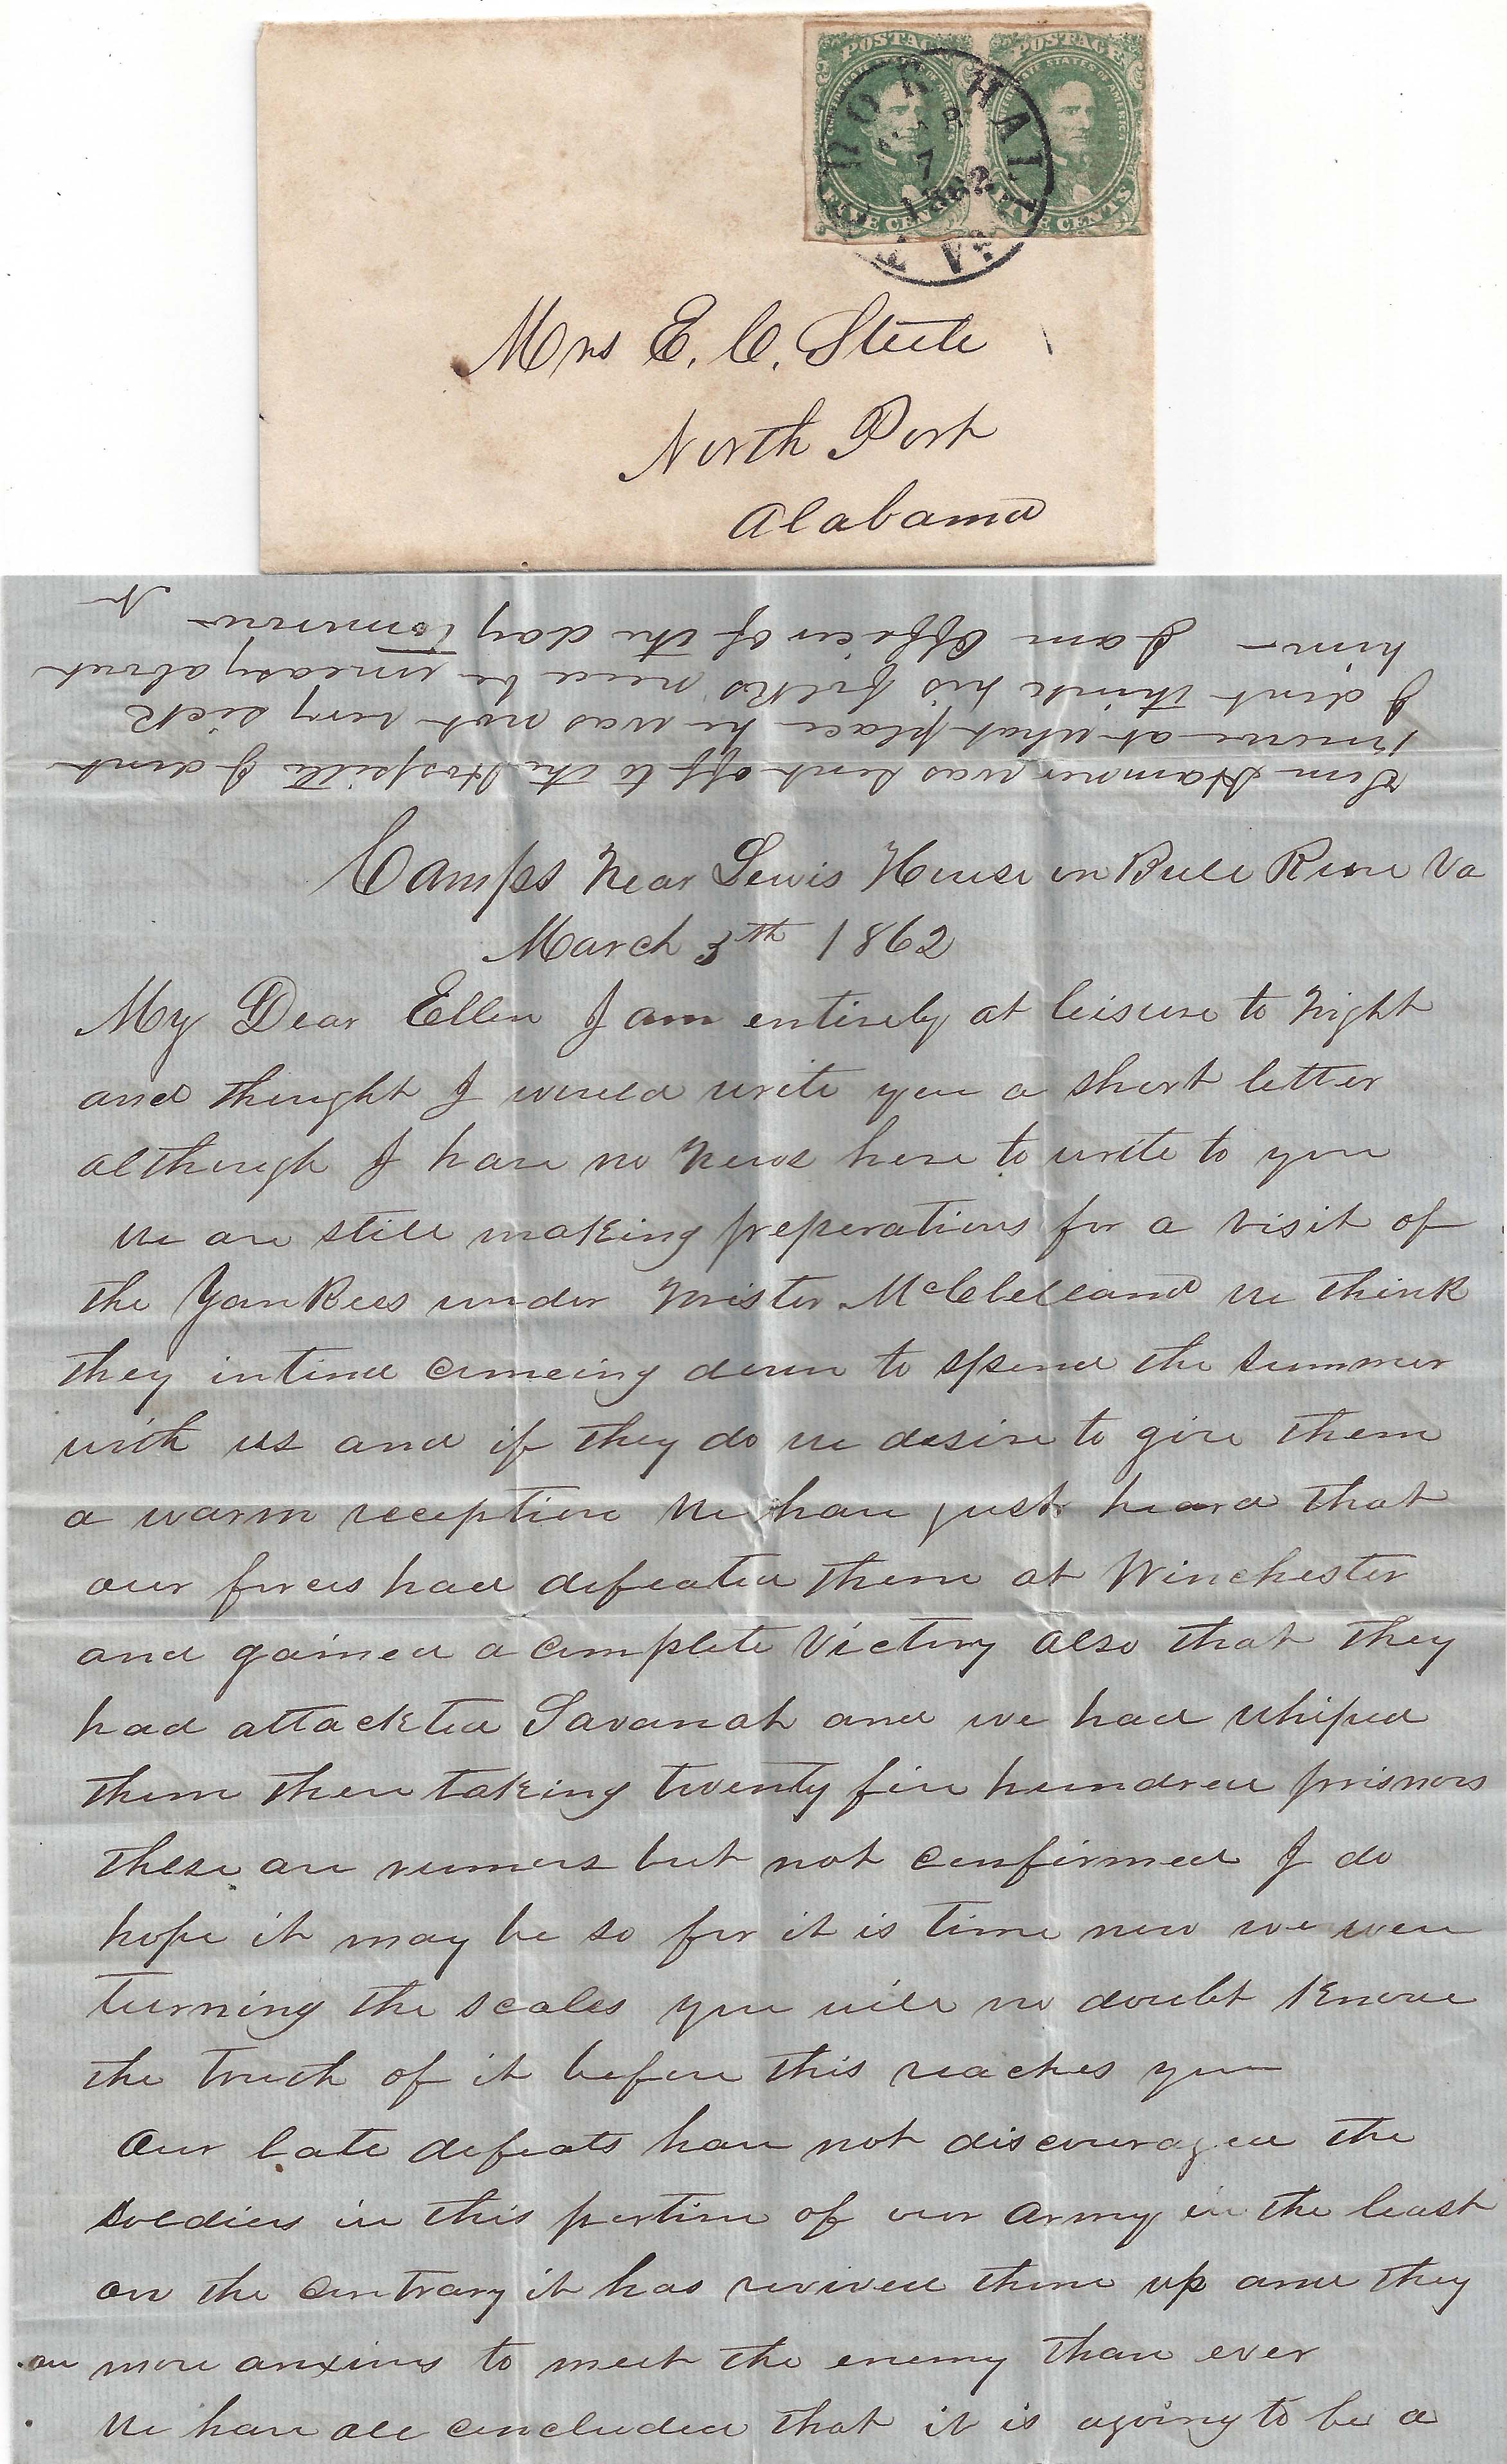 POSTAGE POSTAGE
CONFEDERATE STATES OF AMERICA
FIVE CENTS FIVE CENTS
MAR
7
1862
VA
Mrs E. C. Steele
North Port
Alabama
Sim Hamner was sent off to the Hospitle I dont
know at what place he was not very sick
I dont think his folks need be uneasy about
him I am Officer of the day tomorrow
N
Camps Near Lewis House on Bull Run Va
March 5th 1862
My Dear Ellen I am entirely at leisure to Night
and thought I would write you a short letter
although I have no News here to write to you
We are still making preperations for a visit of
the Yankees under Mister McClelland We think
they intend comeing down to spend the summer
with us and if they do we desire to give them
a warm reception We have just heard that
our forces had defeated them at Winchester
and gained a complete Victory also that they
had attackted Savanah and we had whiped
them there taking twenty five hundred prisnors
these are rumors but not confirmed I do
hope it may be so for it is time now we were
turning the scales you will no doubt know
the truth of it before this reaches you
Our late defeats have not discouraged the
soldiers in this portion of our Army in the least
on the contrary it has revived them up and they
are more anxious to meet the enemy than ever
We have all concluded that it is agoing to be a